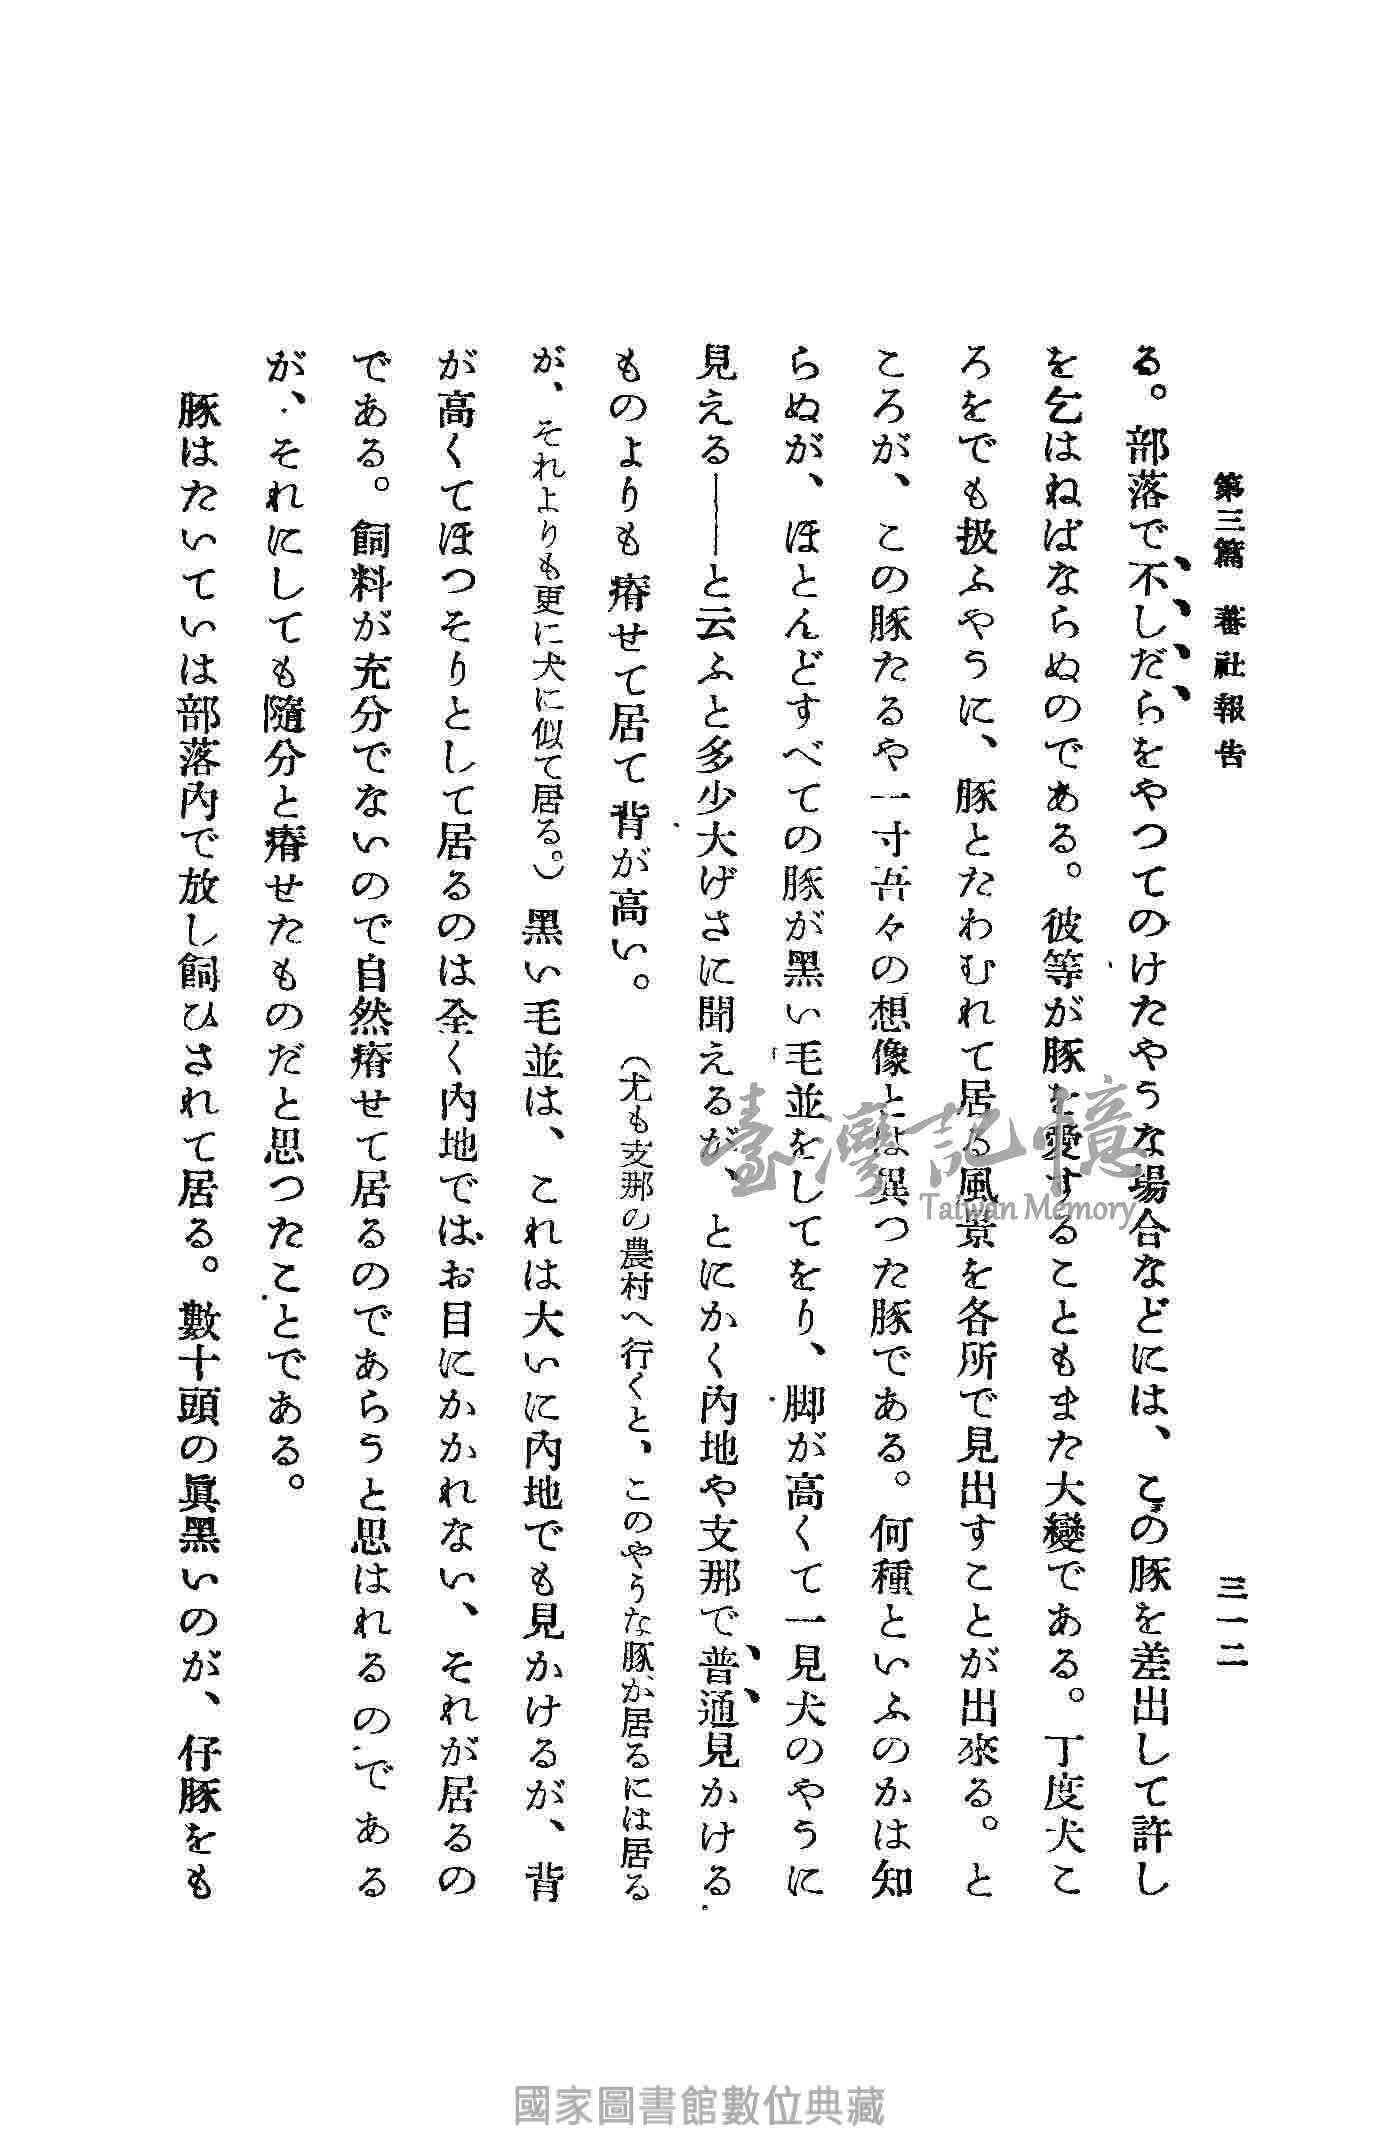 第三篇 蕃社報告
三一二
る。部落で不しだらをやつてのけたやうな場合などには、この豚を差出して許し
を乞はねばならぬのである。彼等が豚を愛することもまた大變である。丁度犬こ
ろをでも扱ふやうに、豚とたわむれて居る風景を各所で見出すことが出來る。と
ころが、この豚たるや一寸吾々の想像とは異つた豚である。何種といふのかは知
らぬが、ほとんどすべての豚が黑い毛並をしてをり、脚が高くて一見犬のやうに
見える――と云ふと多少大げさに聞えるが、とにかく內地や支那で普通見かける
ものよりも瘠せて居て背が高い。（尤も支那の農村へ行くと、このやうな豚が居るには居る
が、それよりも更に犬に似て居る。）黑い毛並は、これは大いに內地でも見かけるが、背
が高くてほつそりとして居るのは全く內地ではお目にかかれない、それが居るの
である。飼料が充分でないので自然瘠せて居るのであらうと思はれるのである
が、それにしても隨分と瘠せたものだと思つたことである。
豚はたいていは部落內で放し飼ひされて居る。數十頭の眞黑いのが、仔豚をも
臺灣記憶
Taiwan Memory
國家圖書館數位典藏